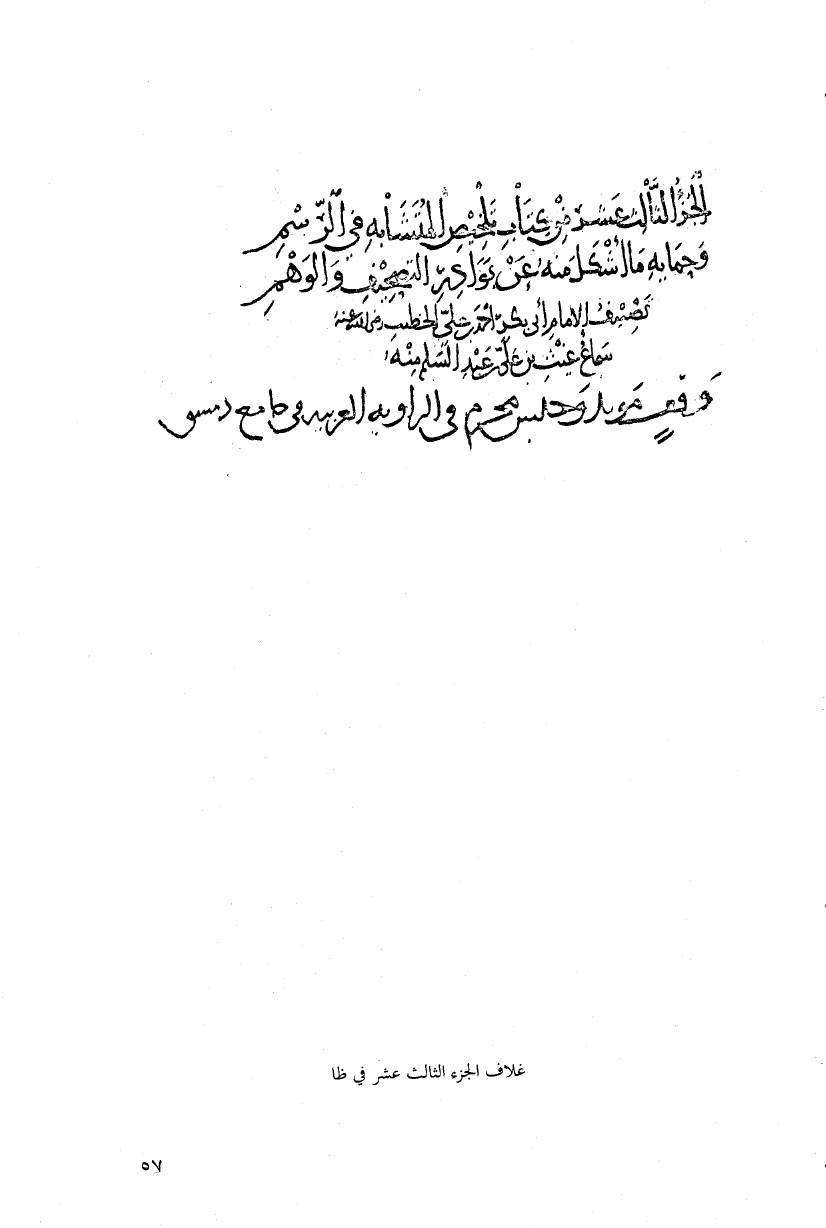 الجزءُ الثّالث عَشر مِنْ كِتَابِ تَلْخِيْصِ المُتَشَابِهِ فِى الرَّسْمِ
وَحِمَايِهِ مَا أَشْكَلَ مِنهُ عَنْ بَوَادِرِ التصْحِيْفِ وَالوَهْمِ
تَصْنِيفُ الامامِ أبى بَكرٍ احْمَد بن عَلىّ الخَطيب رضى الله عنهُ
سَمَاعُ غَيْث بن عَلىّ بن عَبْدِ السَّلمِ مِنْهُ
وقف مؤبد وحبس محرم فى الزاويه الغربيه فى جامع دمسق
غلاف الجزء الثالث عشر في ظا
٥٧